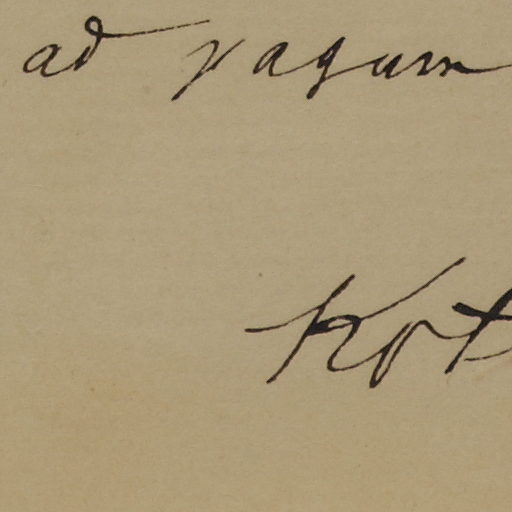 ad pagum
Kot